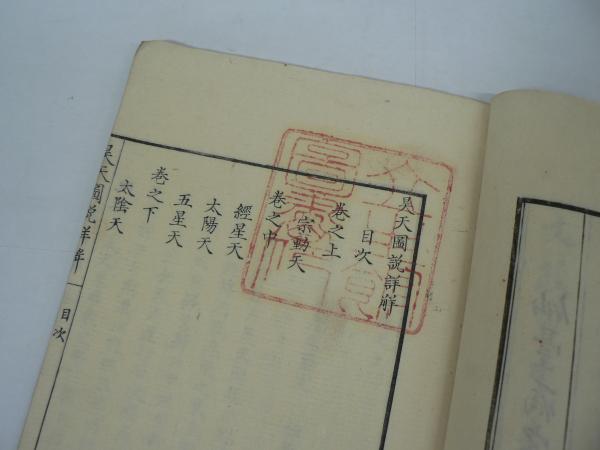 昊天圖説詳解
目次
巻之上
宗動天
巻之中
經星天
太陽天
五星天
巻之下
太陰天
昊天圖説詳解
目次